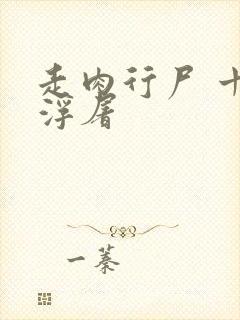 走肉行尸 十
浮屠
一蓁